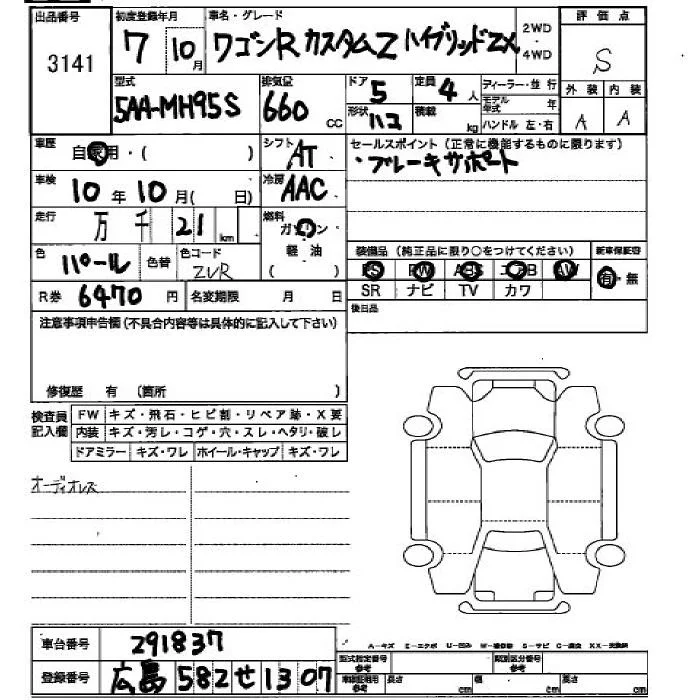 出品番号 初度登録年月 車名・グレード 評価点
3141 7 10月 ワゴンR カスタムZ ハイブリッドZX 2WD・4WD S
型式 排気量 ドア 定員 ディーラー・並行 外装 内装
5AA-MH95S 660cc 5 4人 モデル年式 年 A A
形状 ハコ 積載 kg ハンドル 左・右
車歴 自家用・( ) シフト AT セールスポイント(正常に機能するものに限ります)
・ブレーキサポート
車検 10年10月( 日) 冷房 AAC
走行 万 千 21 km 燃料 ガソリン・軽油 ( )
色 パール 色替 色コード ZVR
装備品(純正品に限り○をつけてください) 新車保証書
PS PW ABS エアB AW 有・無
SR ナビ TV カワ
R券 6470円 名変期限 月 日
後日品
注意事項申告欄(不具合内容等は具体的に記入して下さい)
修復歴 有 (箇所 )
検査員記入欄 FW キズ・飛石・ヒビ割・リペア跡・X要
内装 キズ・汚レ・コゲ・穴・スレ・ヘタリ・破レ
ドアミラー キズ・ワレ ホイール・キャップ キズ・ワレ
オーディオレス
車台番号 291837
A-キズ E-エクボ U-凹み W-補修跡 S-サビ C-腐食 XX-交換済
登録番号 広島 582 せ 1307
型式指定番号 参考 類別区分番号 参考
車検証専用 参考 長さ cm 幅 cm 高さ cm